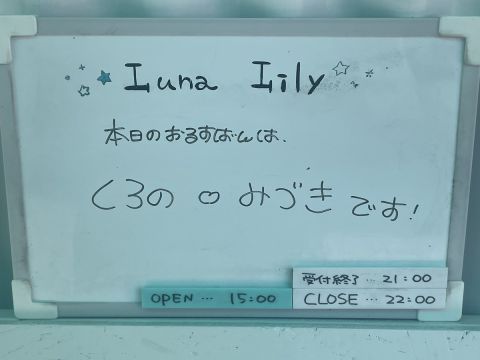 Luna Lily
本日のおるすばんは、
くろの♡みづきです!
受付終了…21:00
OPEN…15:00
CLOSE…22:00